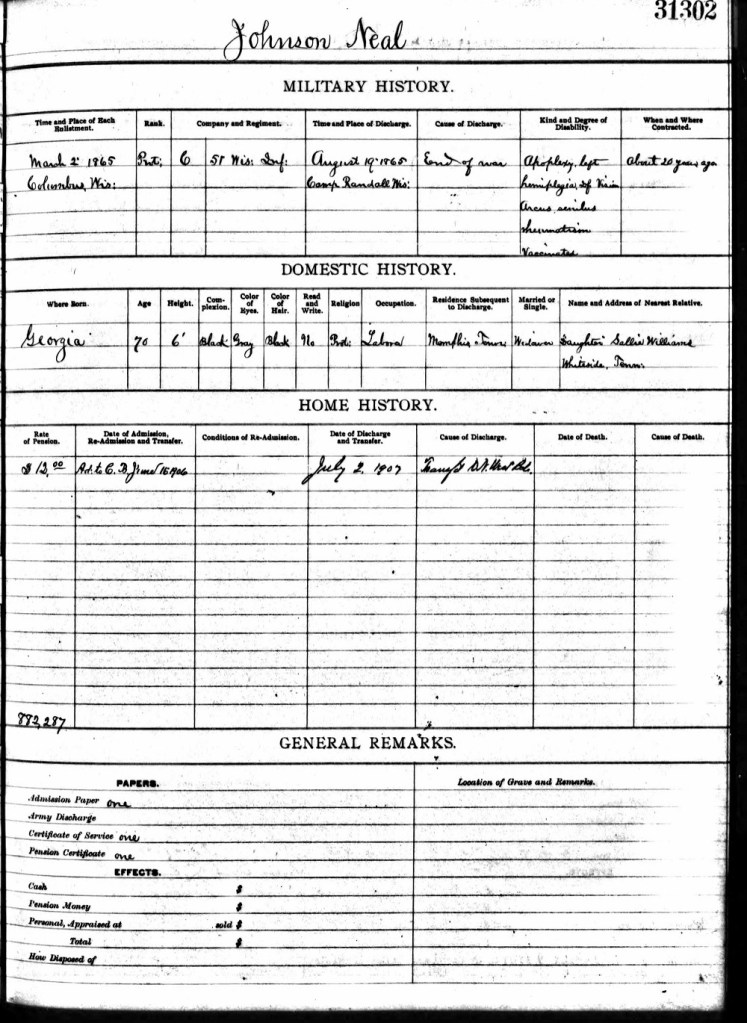 31302
Johnson Neal
MILITARY HISTORY.
Time and Place of Each Enlistment. Rank. Company and Regiment. Time and Place of Discharge. Cause of Discharge. Kind and Degree of Disability. When and Where Contracted.
March 2" 1865 Prvt; C 51 Wis: Inf: August 19" 1865 End of war Apoplexy, left About 20 years ago
Columbus, Wis: Camp Randall Wis: hemiplegia, Df Vision
Arcus senilus
rheumatism
Vaccinated
DOMESTIC HISTORY.
Where Born. Age Height. Complexion. Color of Eyes. Color of Hair. Read and Write. Religion Occupation. Residence Subsequent to Discharge. Married or Single. Name and Address of Nearest Relative.
Georgia 70 6' Black Gray Black No Prot: Labora Memphis Tenn Widower Daughter Sallie Williams
Whiteside, Tenn:
HOME HISTORY.
Rate of Pension. Date of Admission, Re-Admission and Transfer. Conditions of Re-Admission. Date of Discharge and Transfer. Cause of Discharge. Date of Death. Cause of Death.
$ 12.00 Ad. to C. B. 15 1906 July 2. 1907
882,287
GENERAL REMARKS.
PAPERS.
Location of Grave and Remarks.
Admission Paper one
Army Discharge
Certificate of Service one
Pension Certificate one
EFFECTS.
Cash $
Pension Money $
Personal, Appraised at sold $
Total $
How Disposed of